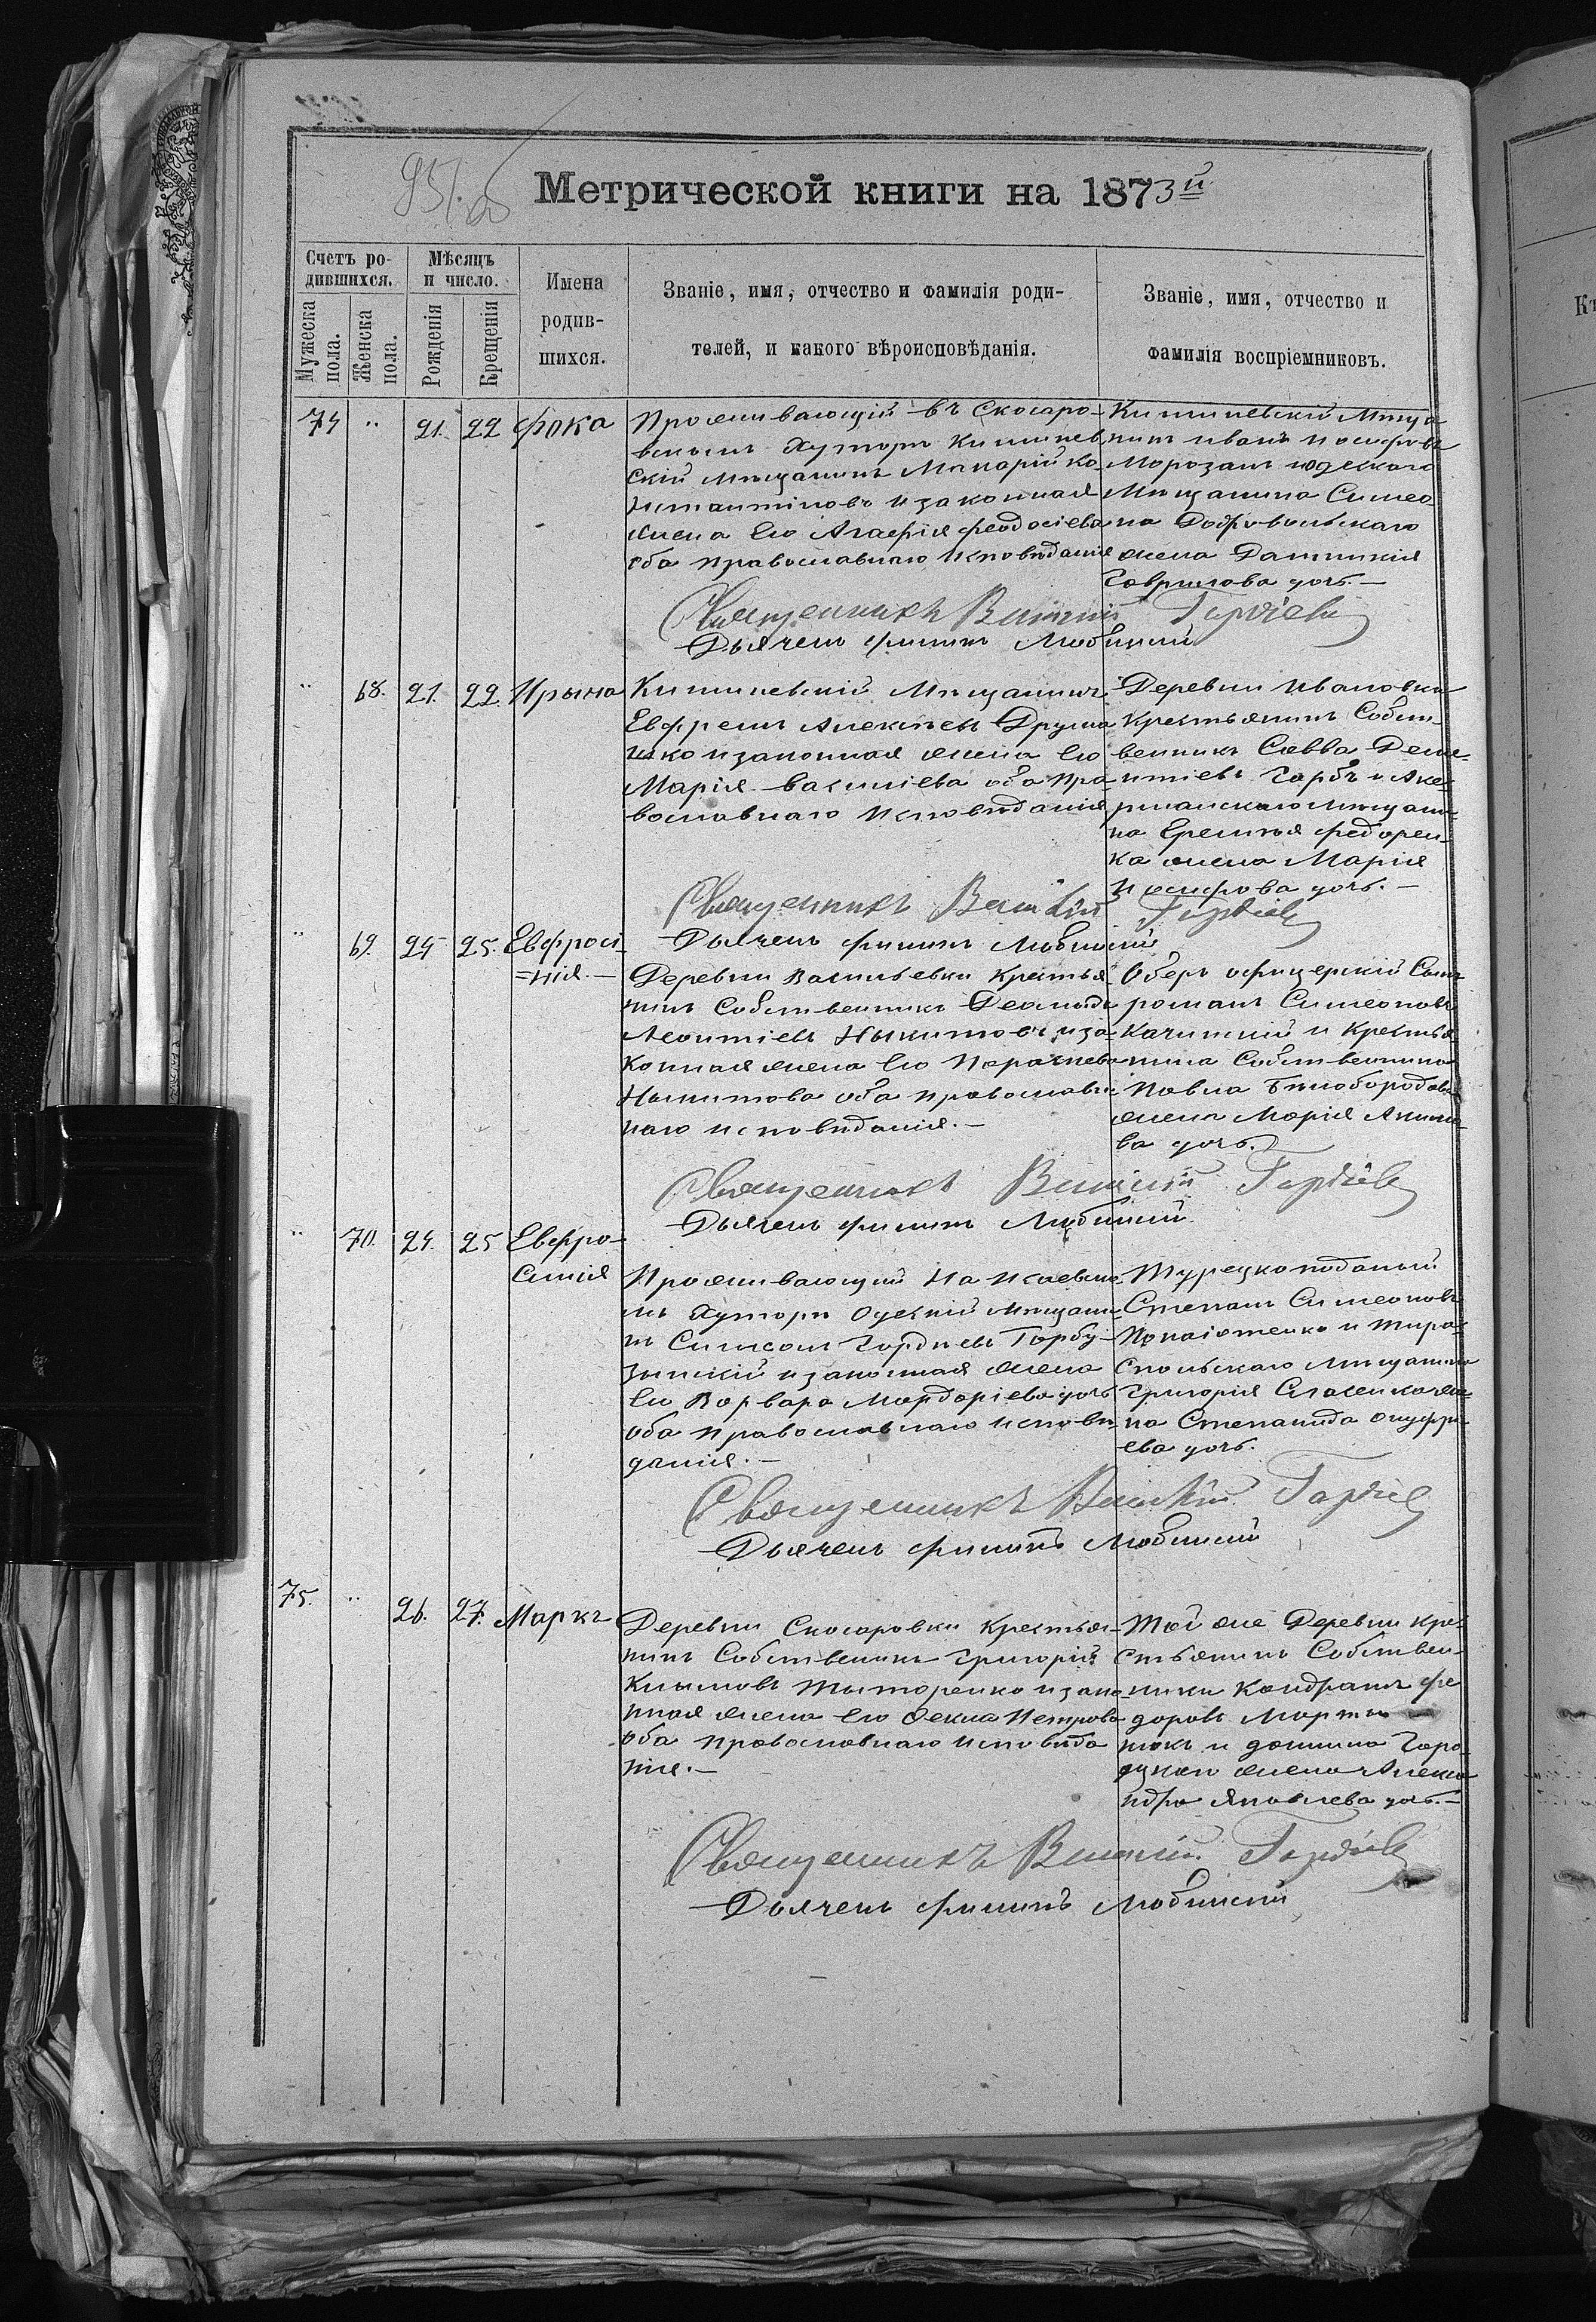 95 об
Метрической книги на 1873й
Счетъ ро-
дившихся.
Мѣсяцъ
и число.
Мужеска
пола.
Женска
пола.
Рожденія
Крещенія
Имена
родив-
шихся.
Званіе, имя, отчество и фамилія роди-
телей, и какого вѣроисповѣданія.
Званіе, имя, отчество и
фамилія воспріемниковъ.
74 " 21. 22 Фока
Проживающій въ Скосаро-
вскомъ Хуторѣ Кишинев
скій Мѣщанинъ Макарій Ко
нстантіновъ и законная
жена Его Агафія Феодосіева
оба православнаго исповѣданія
Кишиневскій Мѣща
нинъ Иванъ Иосифовъ
Морозанъ и Одескаго
Мѣщанина Симео-
на Добровольскаго
жена
Гаврилова дочь.—
Священникъ Василій Гордіевъ
Дьячекъ Филипъ Любинскій
" 68. 21. 22. Ирына
Кишиневскій Мѣщанинъ
Евфремъ Алексѣевъ
и законная жена Его
Марія Василіева оба Пра-
вославнаго Исповѣданія
Деревни Ивановки
Крестьянинъ Собст-
венникъ Савва Деме-
нтіевъ Горбъ и Аке-
рманскаго мѣщани-
на Еремѣя Федорен-
ка жена Марія
Иосифова дочь.—
Священникъ Василій Гордіевъ
Дьячекъ Филипъ Любинскій
" 69. 24 25. Евфросі-
=нія.—
Деревни Васильевки Крестья-
нинъ Собственникъ
Леонтіевъ Никитовъ и за-
конная жена Его
Никитова оба православ-
наго исповѣданія.—
Оберъ офицерскій Сынъ
Романъ Симеоновъ
Качинскій и Крестья-
нина Собственника
Павла Бѣлобородова
жена Марія
ва дочь.
Священникъ Василій Гордіевъ
Дьячекъ Филипъ Любинскій
" 70. 24. 25 Евфро-
синія
Проживающій На Исаевско
мъ Хуторѣ Одескій мѣщани-
нъ Симеонъ Гордѣевъ Горбу-
зинскій и законная жена
Его Варвара Мардаріева дочь
Оба православнаго исповѣ-
данія.—
Турецкоподаный
Степанъ Симеоновъ
и Тира-
спольскаго мѣщанина
Григорія же-
на Степанида Онуфрі-
ева дочь.
Священникъ Василій Гордіевъ
Дьячекъ Филипъ Любинскій
75. " 26. 27. Маркъ
Деревни Скосаровки Крестья-
нинъ Собственикъ Григорій
Климовъ Тыторенко и зако-
нная жена Его Ѳекла Петрова
Оба православнаго исповѣда
нія.—
Той же Деревни Кре-
стьянинъ Собствен-
ники Кондратъ Фе
доровъ Марты-
нюкъ и Горо-
децкаго жена Алекса
ндра Яковлева дочь.—
Священникъ Василій Гордіевъ
Дьячекъ Филипъ Любинскій